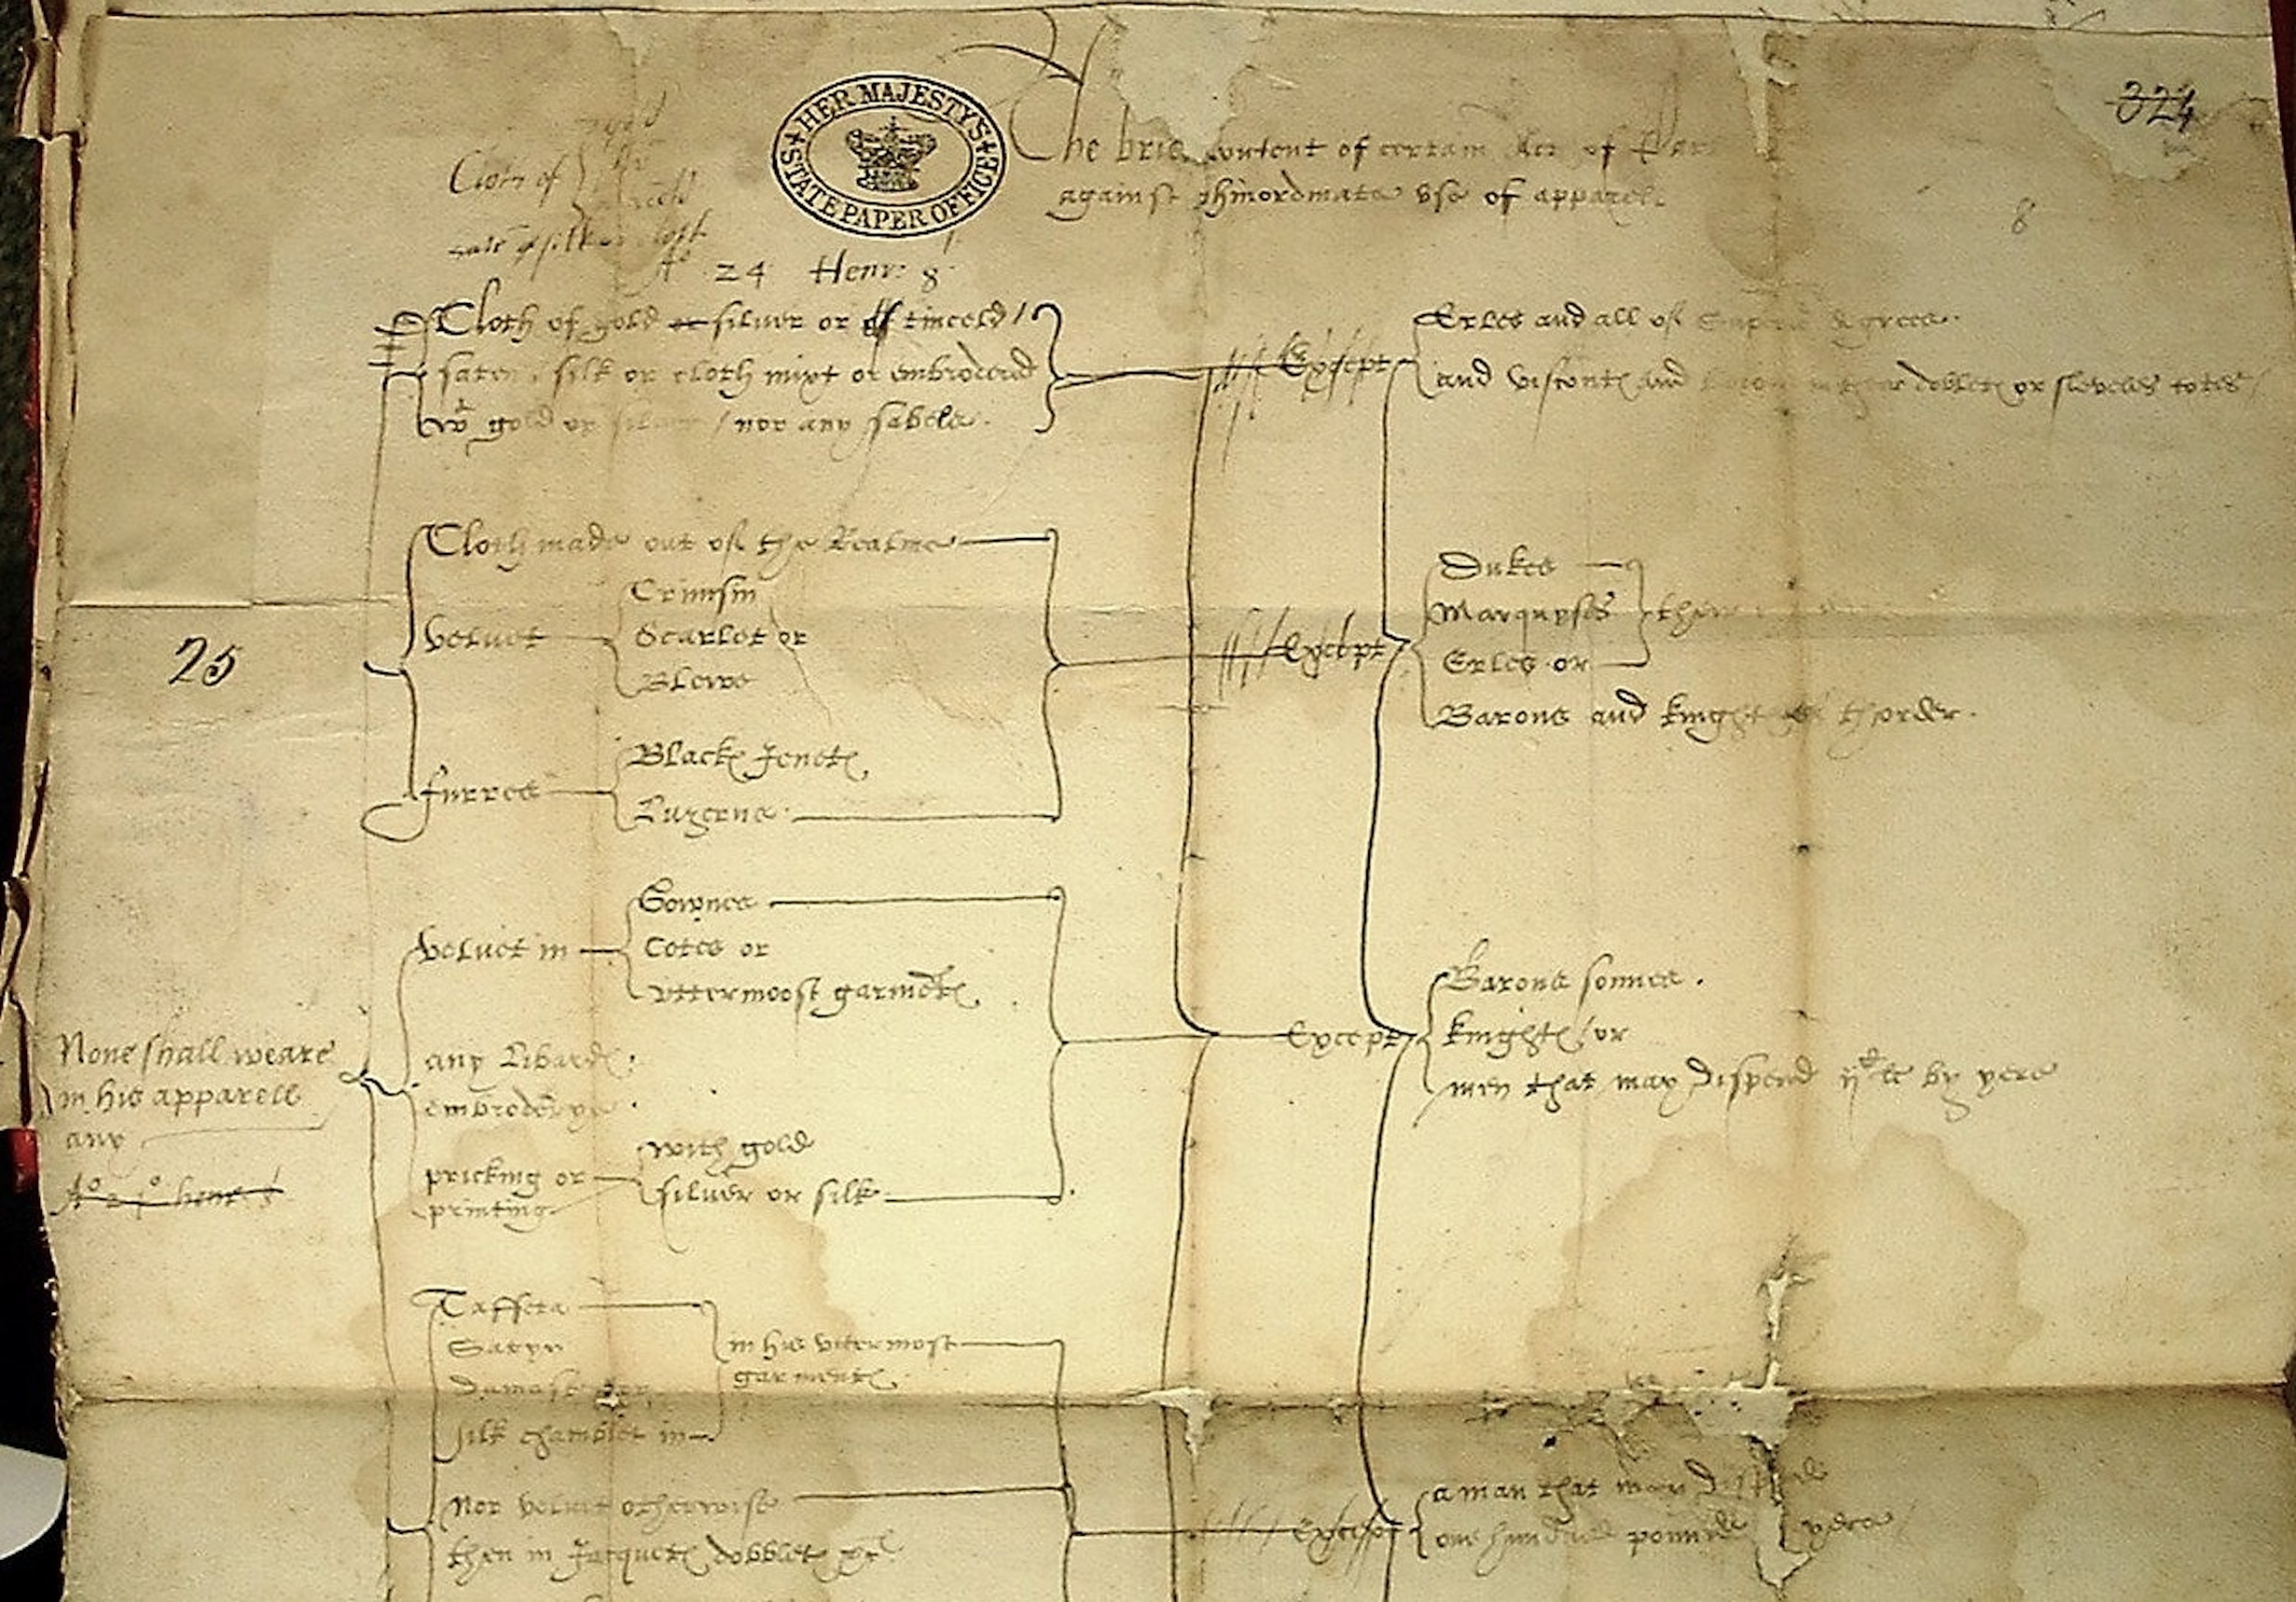 HER MAJESTY'S STATE PAPER OFFICE
324
The content of certain of
against use of apparel.
8
Cloth of
24 Henr: 8
Cloth of gold or silver or tinceld /
saten, silk or cloth mixt or embrodered
wt gold or silver / nor any sables.
Except
Erles and all of degrees.
and viscontes and in doblets or sleveles cotes /
Cloth made out of the Realme
velvet
Crimisin
Scarlet or
Blewe
furres
Black Jenetes
Luzerns.
Except
Dukes
Marquyses
Erles or
Barons and knights thorder.
25
velvet in
Gownes
Cotes or
vttermoost garmentes.
any
embroderye
pricking or
printing
with gold
silver or silk
Except
Barons sonnes.
knightes / or
men that may dispend by yere
None shall weare
in his apparell
any
Taffeta
Satyn
Damask
silk chamblet in
in his vttermost
garmentes.
Nor velvet otherwise
then in Jacquetes dobbletes
Except
a man that may
one hundred pounds yere